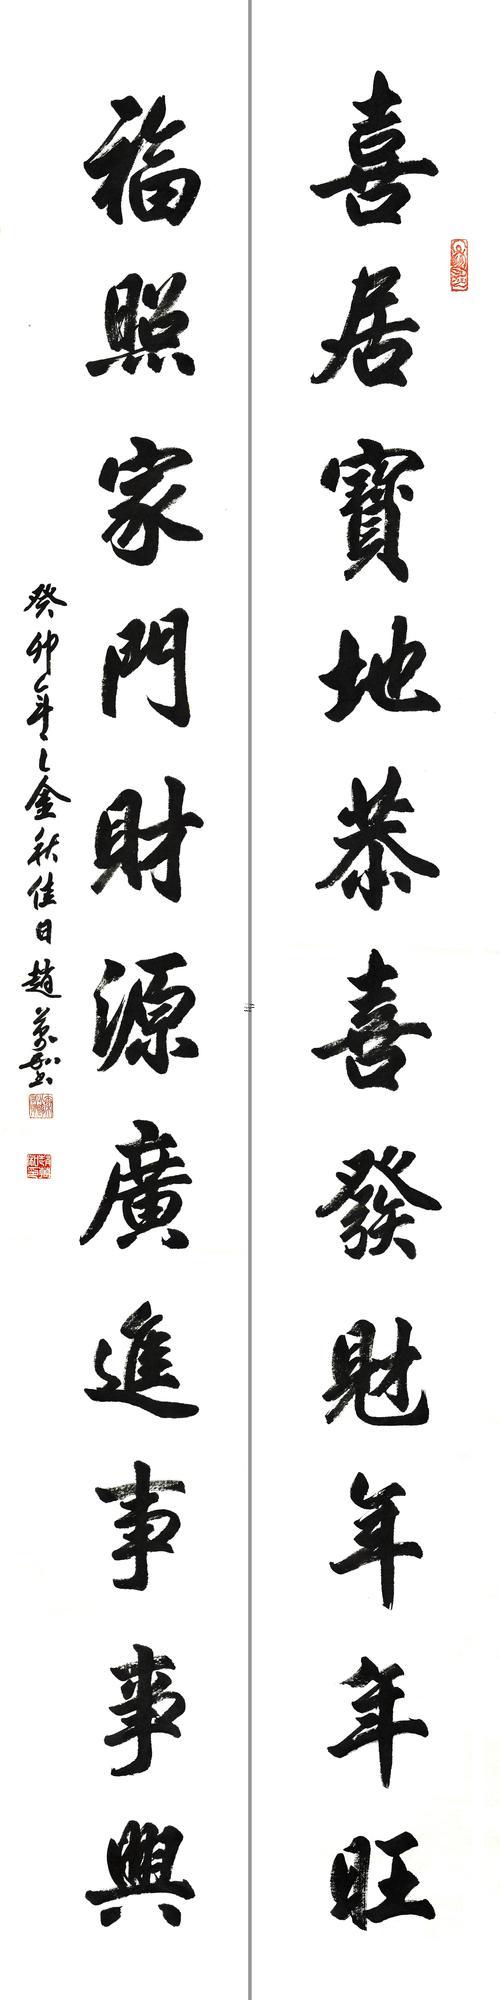 喜居寶地恭喜發財年年旺
福照家門財源廣進事事興
癸卯年之金秋佳日趙